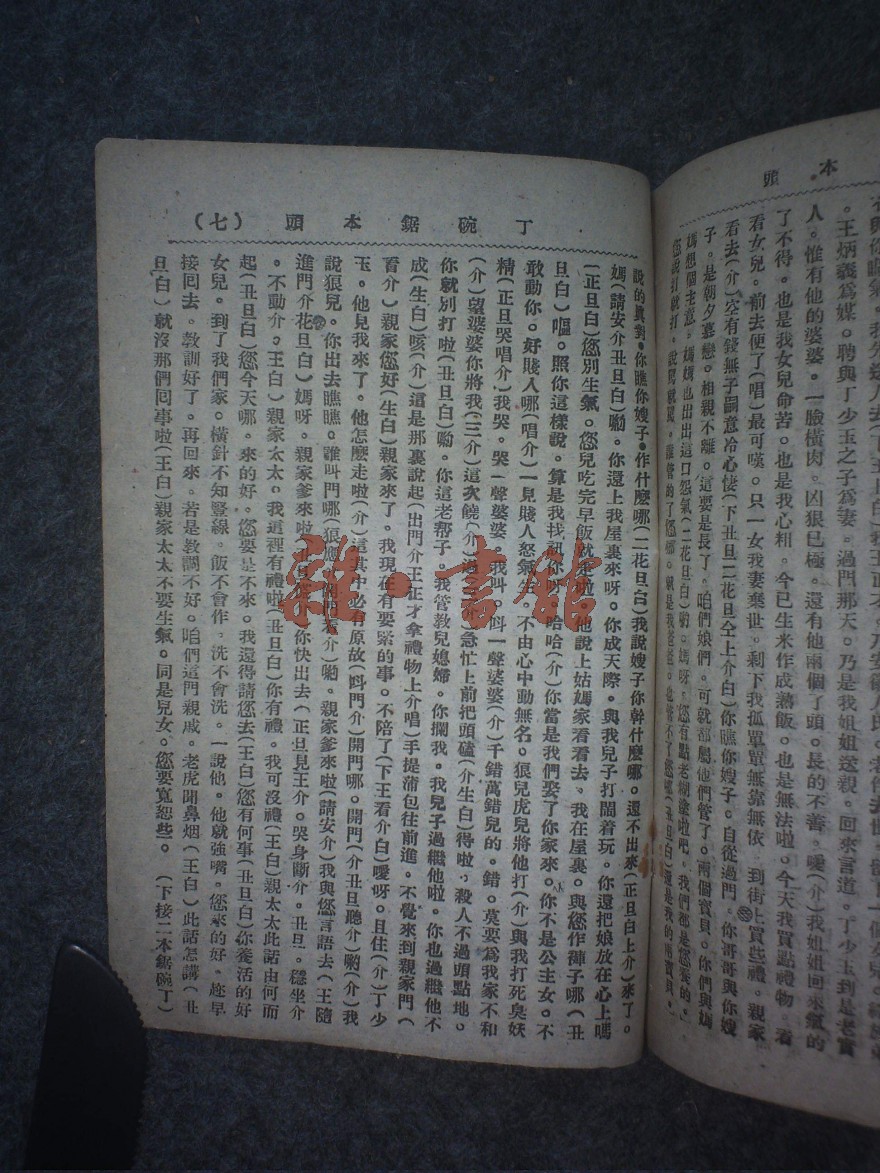 本頭
。王炳義爲媒。聘與丁少玉之子爲妻。過門那天。乃是我姐姐送親。回來言道。丁少玉到是老實
人。惟有他的婆婆。一臉橫肉。凶狠已極。還有他兩個了頭。長的不善。噯(介)我姐姐回來氣的
了不得。也是我女兒命苦。也是我心粗。今已生米作成熟飯。也是無法啦。今天我買點禮物。看
看女兒。前去便了(唱)最可嘆。只一女我妻棄世。剩下我孤單單無靠無依 到街上買些禮。親家
看去(介)空有錢無子嗣意冷心悽(下丑旦二花旦仝上介白)你瞧你嫂子。自從過門。你哥哥與你嫂
子。是朝夕蓦戀。相親不離。這要是長了。咱們娘們。可就都屬他們管了。兩個寶貝。你們與媽
媽想個主意。媽媽也出出這口怨氣(二花旦白)喲。媽呀。您有點老糊塗啦吧。我們都是您養的。
您說打就打。說罵就罵。
丁碗鋸本頭 (七)
說的眞對。你瞧你嫂子。作什麼哪(二花旦白)我說嫂子你幹什麼哪。還不出來(正旦白上介)來了。
媽(請安介丑旦白)喲。你還上我屋裏來呀。你成天際。與我兒子打鬧着玩。你還把娘放在心上嗎
(正旦白)您別生氣。您兒吃完早飯就走啦。他說上姑媽家看看去。我在屋裏。與您作褲子哪(丑
旦白)嘔。照你這樣說。算是我找訊你呀。哈哈(介)你當是我們娶了你家來。你不是公主女。不
敢動你。好賤人哪(唱介)一見賤人怒氣生。不由心中動無名。狠兒虎兒將他打(介)與我打死臭妖
精(正旦哭唱介)我哭。哭一聲婆婆 我叫。叫一聲婆婆(介)千錯萬錯兒的。錯。莫要爲我家不和
(介)望婆婆你將我(三介)這次饒(介)急忙上前把頭磕(介生白)得啦。殺人不過頭點地。
你就別打啦(丑旦白)喲。你這老帮子。我管教兒媳婦。你攔我。我兒子過繼他啦。你也過繼他不
成(生白)咳(介)這是那裏說起(出門介王正才拿禮物上介唱)手提蒲包往前進。不覺來到親家門(
看介)親家您好(生白)親家來了。我現在有要緊的事。不陪了(下王看介白)噯呀。且住(介)丁少
玉。他見我來了。他怎麼走啦(介)這其中必有原故(叫門介)開門哪。開門(介丑旦聽介)喲(介)我
說狼兒。你出去瞧瞧。誰叫門哪(狠應 開門看介)喲。親家爹來啦(請安介)我與您言語去(王隨
進門介花旦白)媽呀。親家爹來啦(丑旦 你快出去(正旦見王介。哭身斷介。丑旦。穩坐介
。不動介。王白)親家太太。我這裡有禮啦(丑旦白)你有禮。我可沒禮(王白)親太太此話由何而
起(丑旦白)您今天哪。來的好。您要是不來。我還得請您去(王白)您有何事(丑旦白)你養活的好
女兒。到了我們家。橫針不知豎線。飯不會作。洗不會洗。一說他。他就強嘴。您來的好。趁早
接回去。教訓好了。再回來。若是教調不好。咱們這門親戚。老虎聞鼻烟(王白)此話怎講(丑
旦白)就沒那們囘事啦(王白)親家太太不要生氣。同是兒女。您要寬恕些。 (下接二本鋸碗丁)
雜·書館